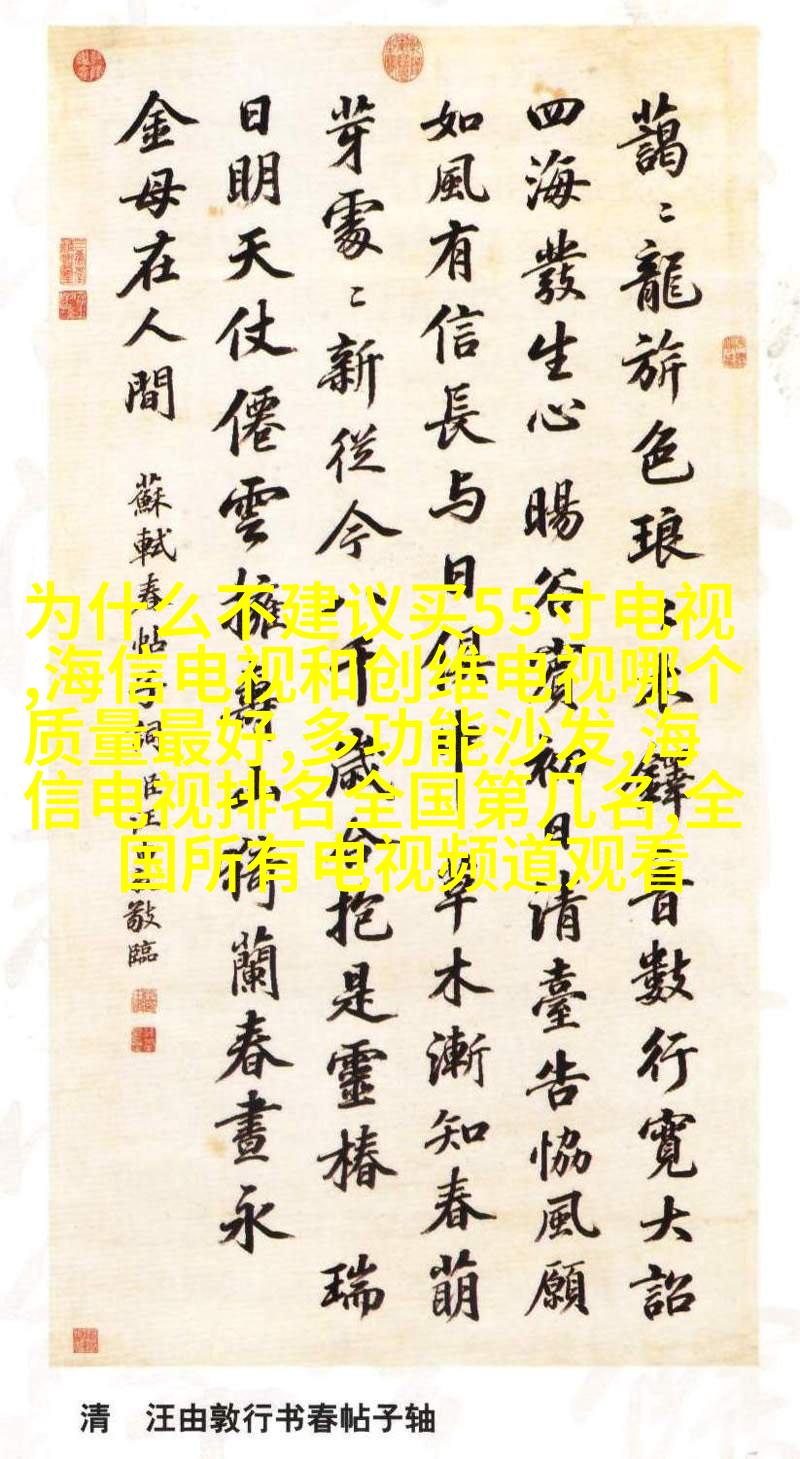 藹〻龍旂色琅〻木鐸音數行寬大詔
四海發生心 暘谷賓初日清臺告協風願
如風有信長与日俱中草木漸知春萌
芽處〻新從今八千歲合抱是靈椿 瑞
日明天仗僊雲擁壽山猗蘭春晝永
金母在人間 蘇軾春帖子詞臣汪由敦敬臨
为什么不建议买55寸电视
,海信电视和创维电视哪个
质量最好,多功能沙发,海
信电视排名全国第几名,全
国所有电视频道观看
清 汪由敦行书春帖子轴